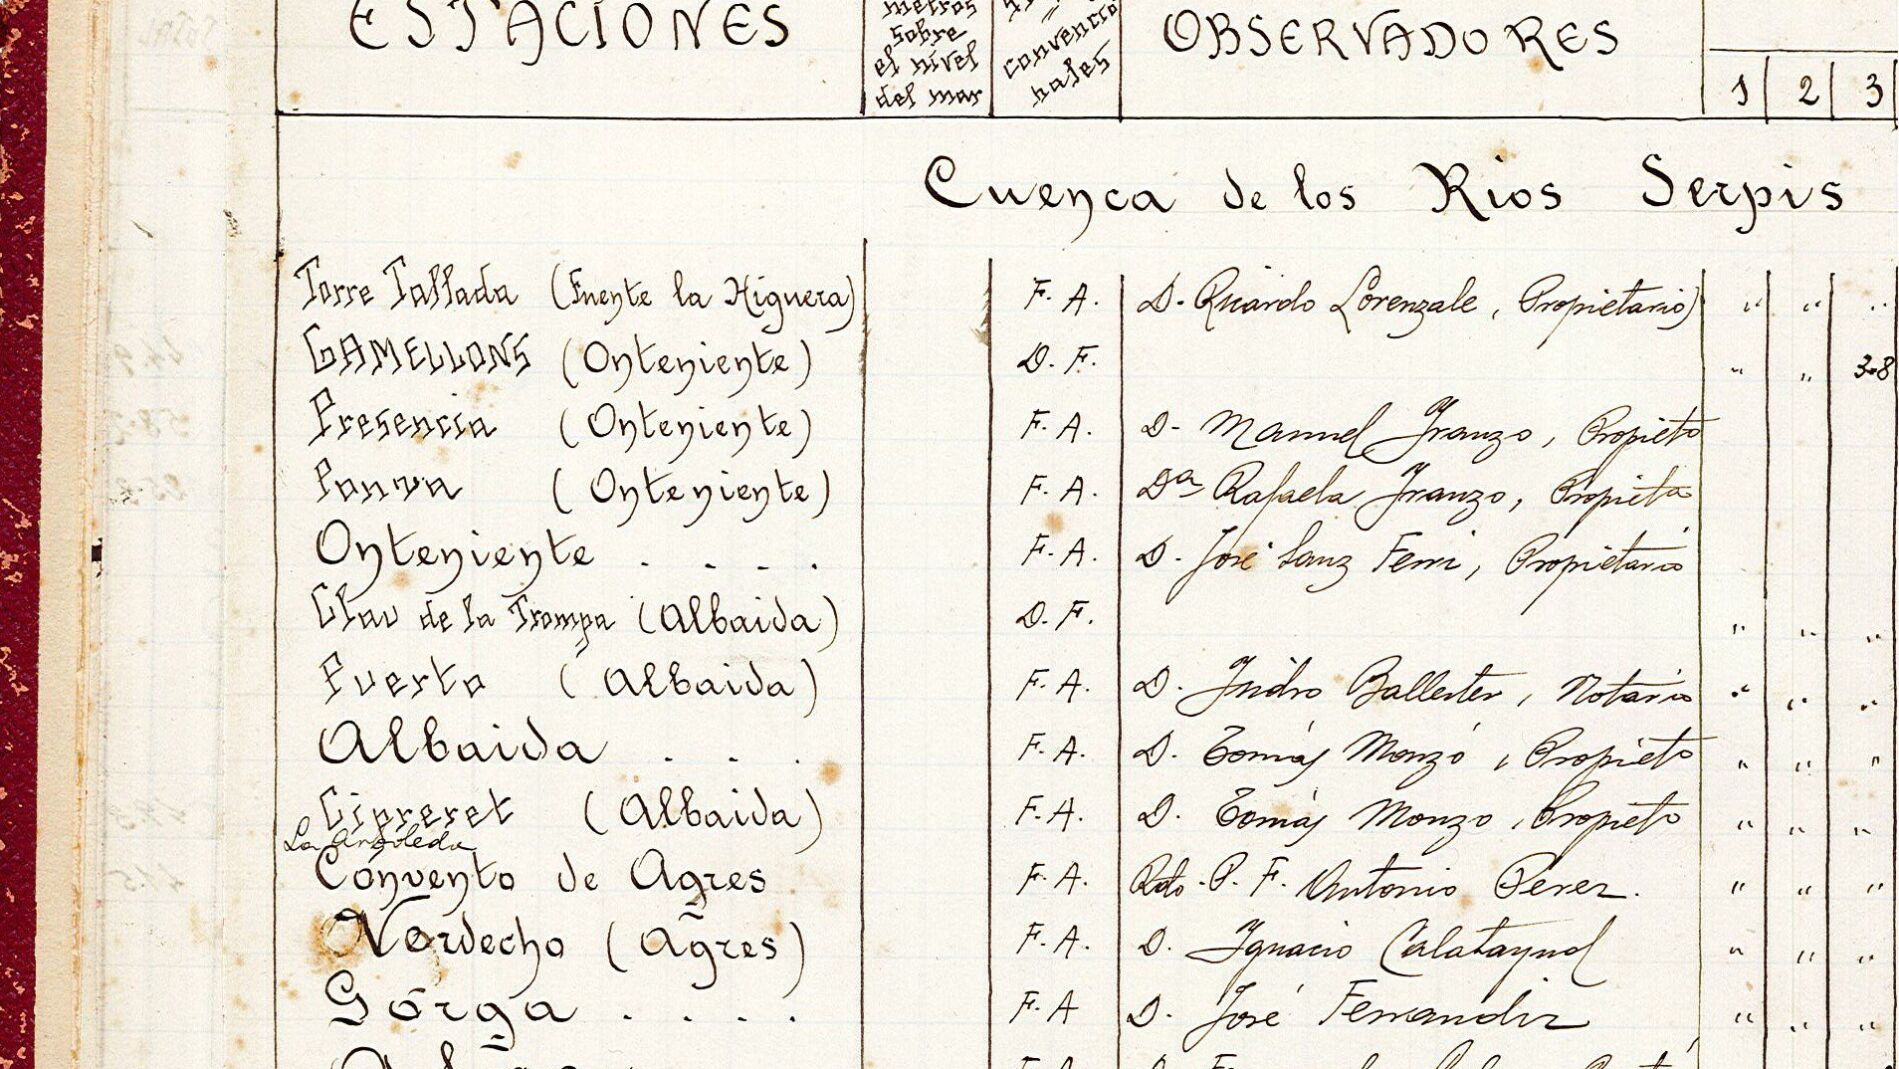 ESTACIONES metros sobre el nivel del mar convencionales OBSERVADORES 1 2 3
Cuenca de los Rios Serpis
Torre Tallada (Fuente la Higuera) F. A. D. Ricardo Lorenzale, Propietario " " "
GAMELLONS (Onteniente) D. F. " " 3.8
Presencia (Onteniente) F. A. D. Manuel Iranzo, Propieto
(Onteniente) F. A. Da Rafaela Iranzo, Propieta
Onteniente . . . . F. A. D. José Sanz Ferri, Propietario
Clau de la Trompa (Albaida) D. F. " " "
Puerto (Albaida) F. A. D. Isidro Ballester, Notario " " "
Albaida . . . F. A. D. Tomás Monzó, Propieto " " "
Cipreret (Albaida) F. A. D. Tomás Monzó, Propieto " " "
La Arboleda
Convento de Agres F. A. Rdo. P. F. Antonio Perez. " " "
(Agres) F. A. D. Ignacio Calatayud " " "
Gorga . . . . F. A D. José Ferrandiz " " "